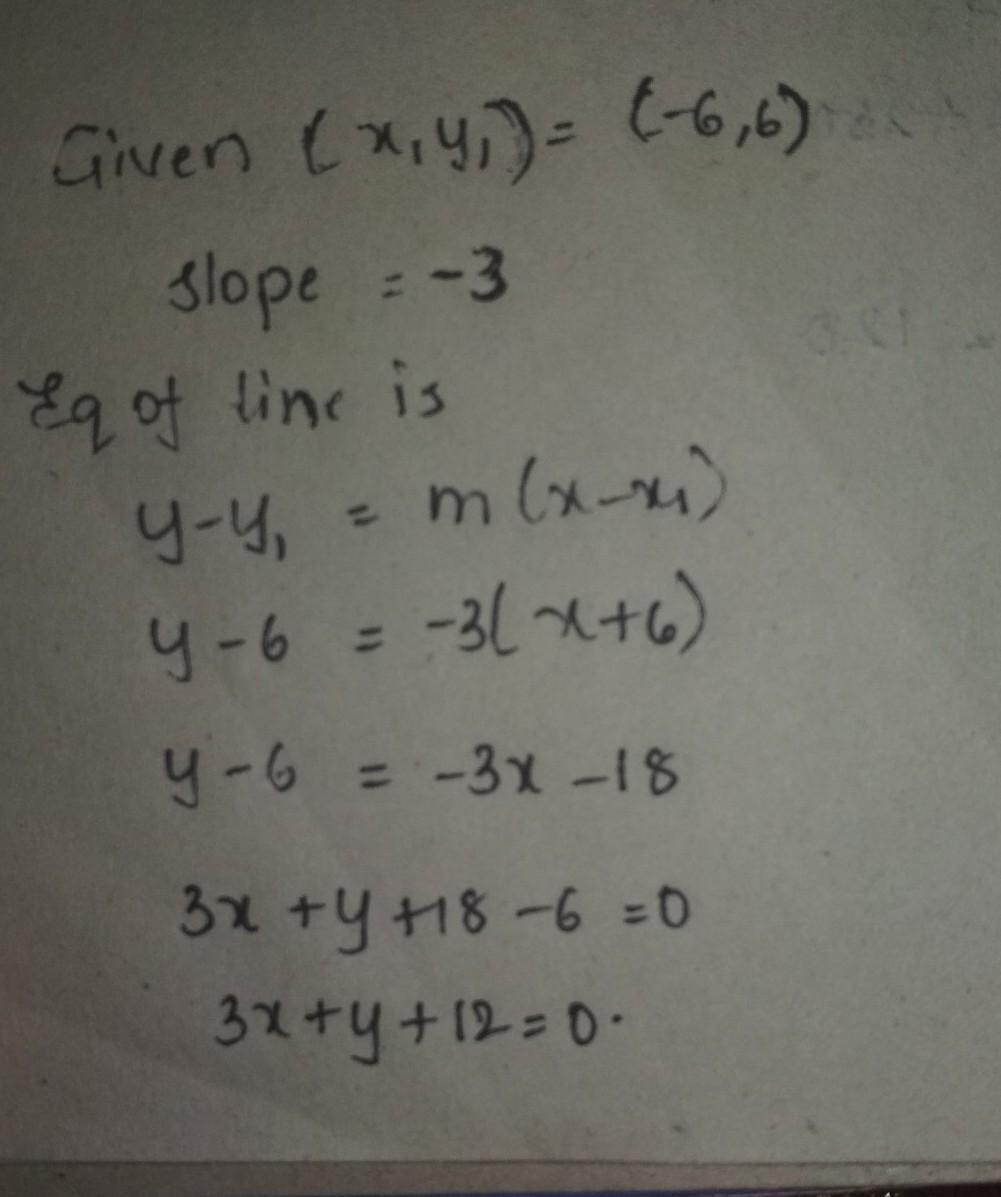 Given (x₁y₁) = (-6,6)
slope = -3
Eq of line is
y-y₁ = m(x-x₁)
y-6 = -3(x+6)
y-6 = -3x -18
3x +y +18 -6 =0
3x+y+12=0.